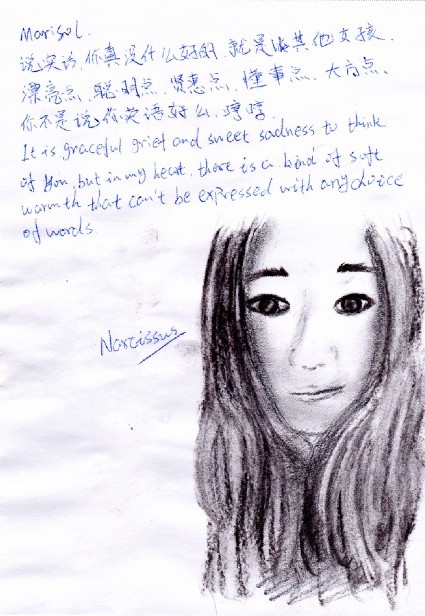 Marisol.
说实话,你真没什么好的,就是比其他女孩.
漂亮点、聪明点、贤惠点、懂事点、大方点、
你不是说你英语好么,哼哼.
It is graceful grief and sweet sadness to think
of you, but in my heart, there is a kind of soft
warmth that can't be expressed with any choice
of words
Narcissus